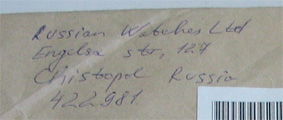 Russian Watches Ltd
Engelsa str, 127
Chistopol Russia
422981